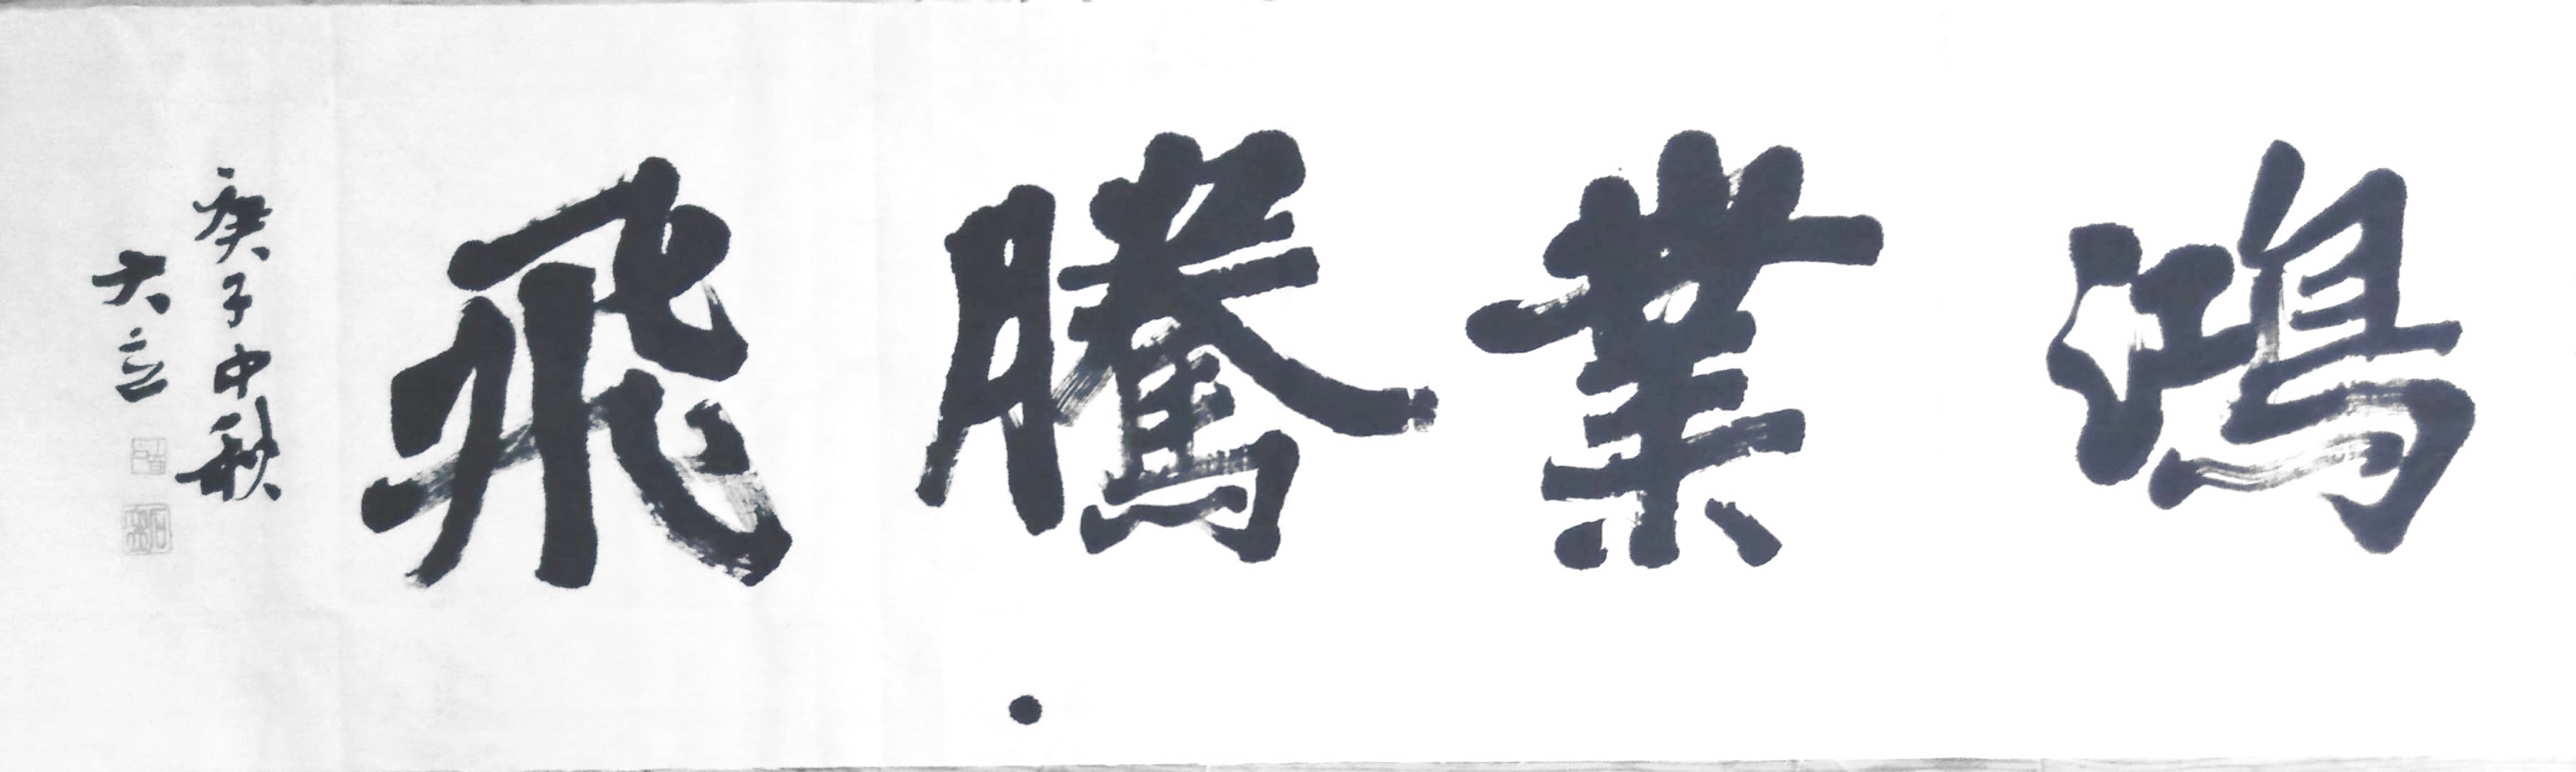 鴻業騰飛
庚子中秋
大立